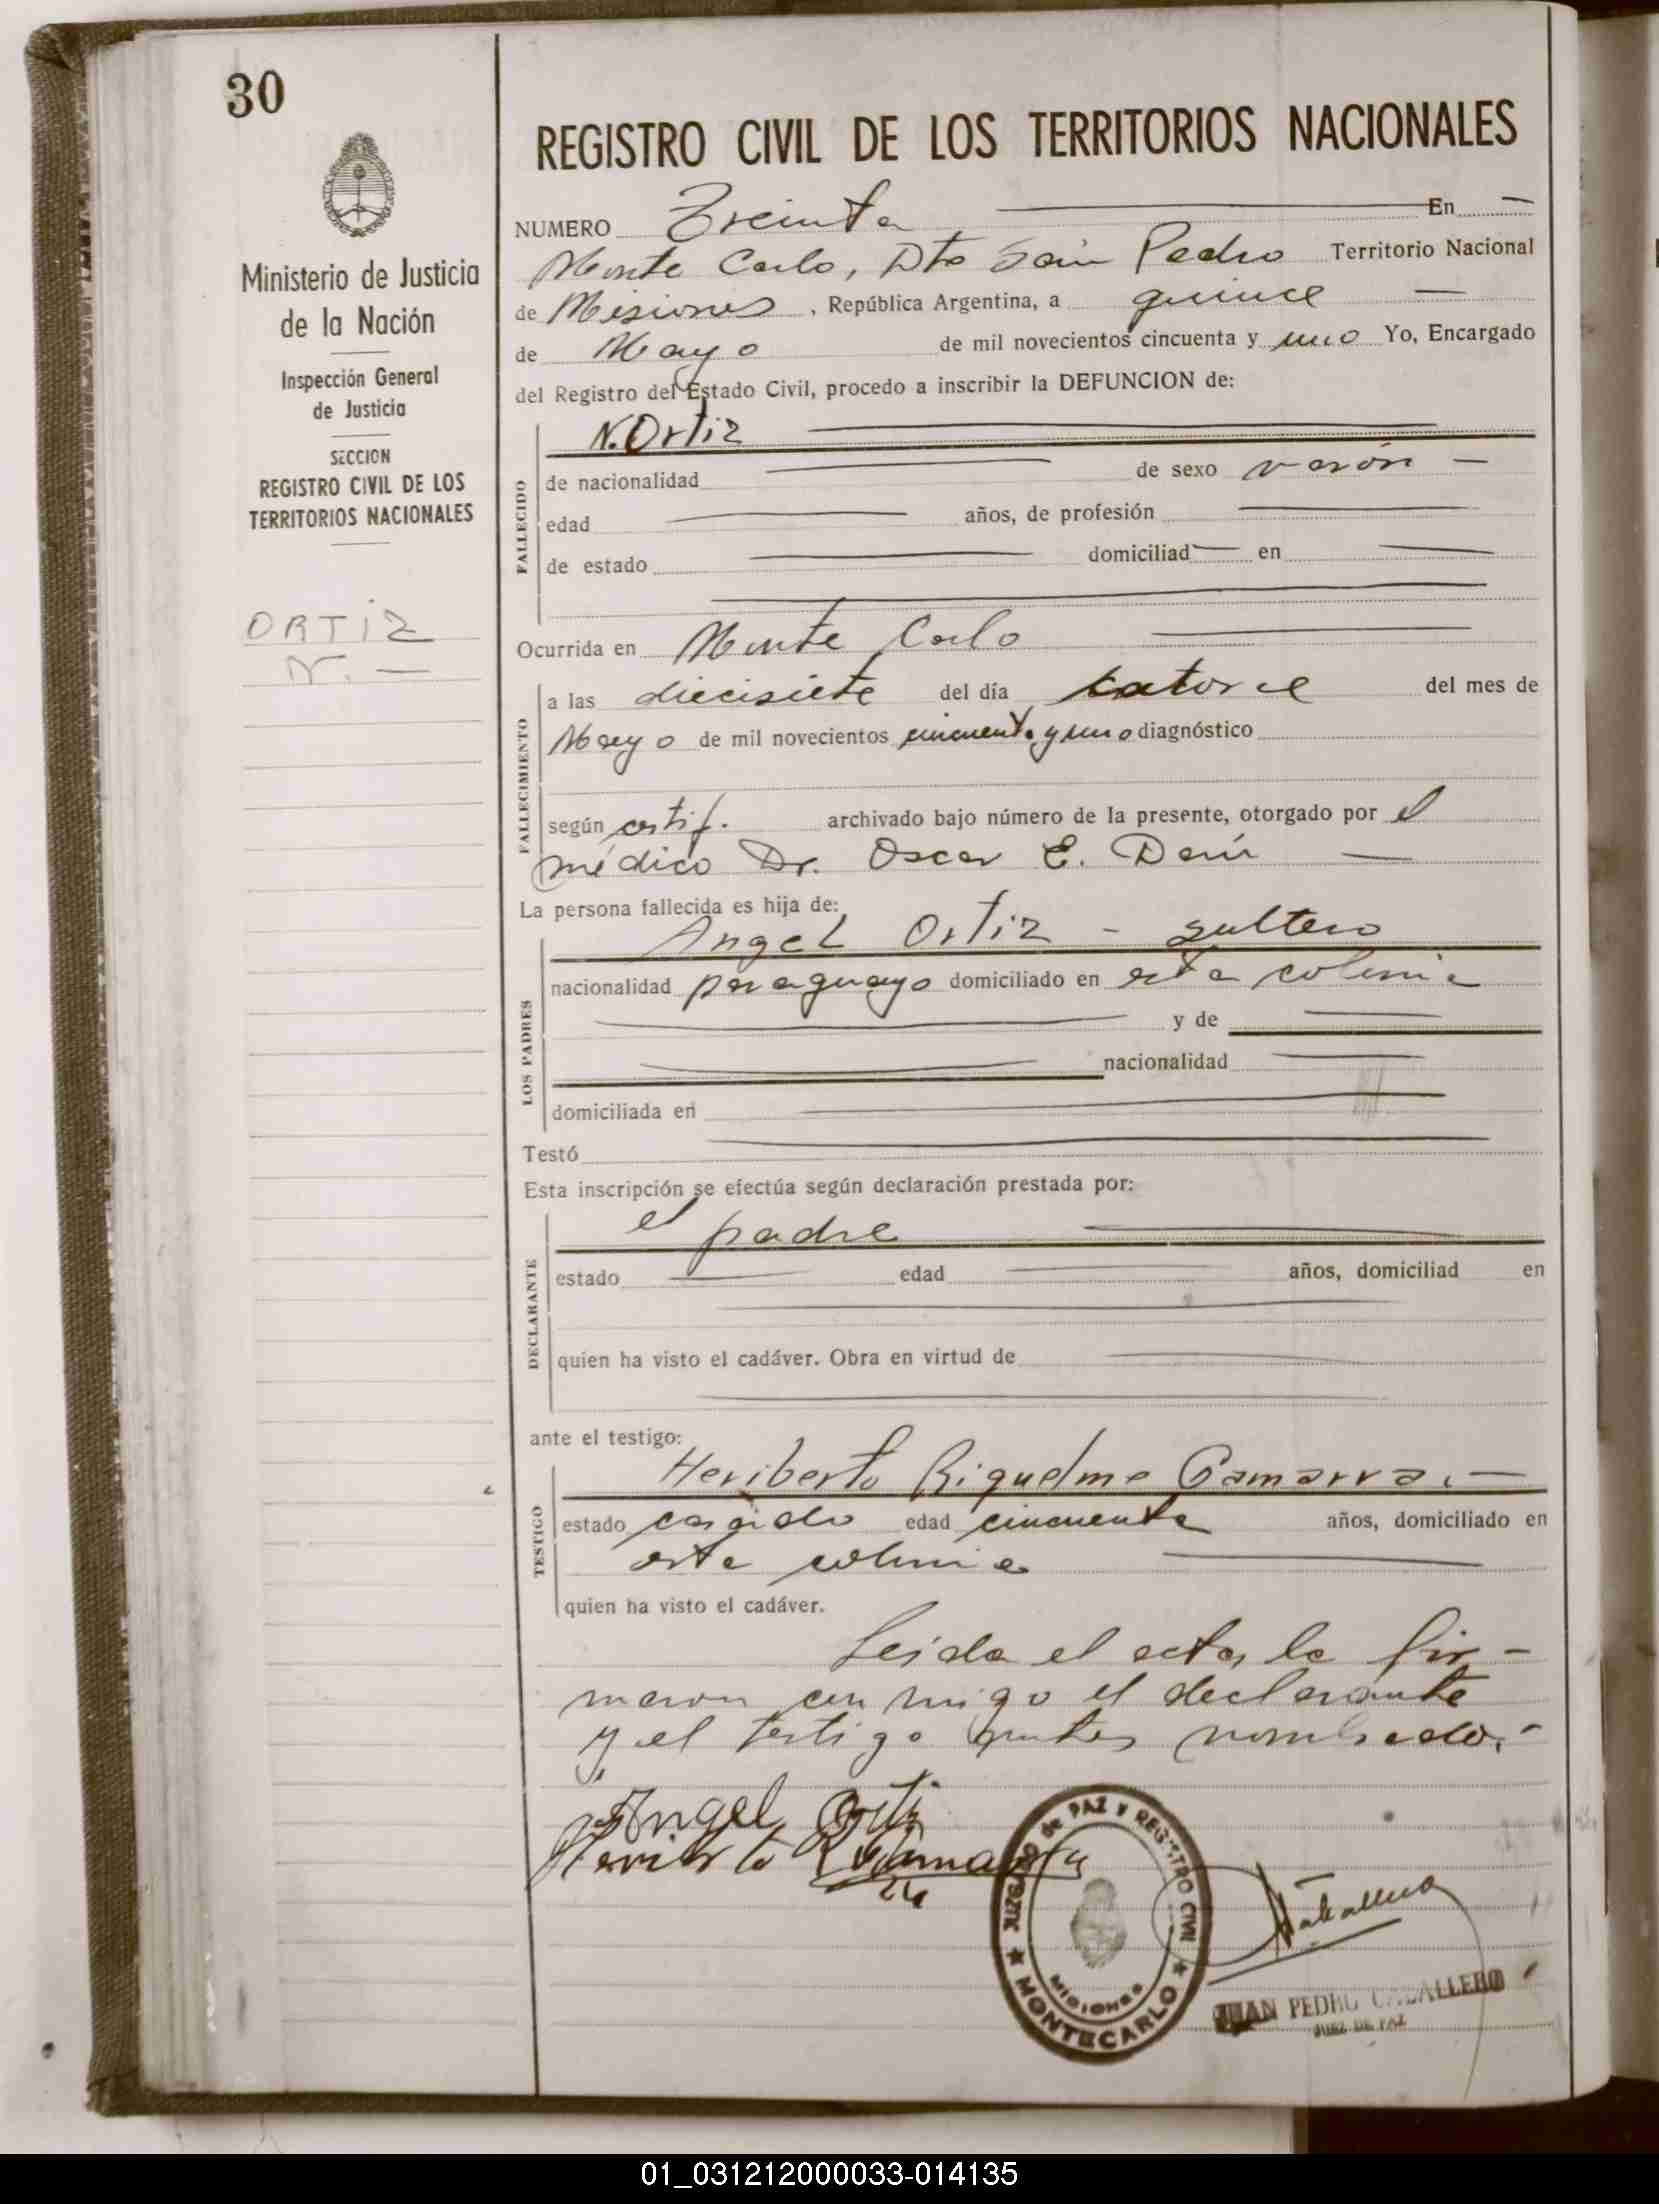 30
Ministerio de Justicia
de la Nación
Inspección General
de Justicia
SECCION
REGISTRO CIVIL DE LOS
TERRITORIOS NACIONALES
ORTIZ
N. —
REGISTRO CIVIL DE LOS TERRITORIOS NACIONALES
NUMERO Treinta — En —
Monte Carlo, Dto San Pedro Territorio Nacional
de Misiones, República Argentina, a quince —
de Mayo de mil novecientos cincuenta y uno Yo, Encargado
del Registro del Estado Civil, procedo a inscribir la DEFUNCION de:
FALLECIDO
N. Ortiz —
de nacionalidad — de sexo varón —
edad — años, de profesión —
de estado — domiciliad— en —
Ocurrida en Monte Carlo —
FALLECIMIENTO
a las diecisiete del día catorce del mes de
Mayo de mil novecientos cincuenta y uno diagnóstico
según certif. archivado bajo número de la presente, otorgado por el
médico Dr. Oscar E. —
La persona fallecida es hija de:
LOS PADRES
Angel Ortiz - soltero
nacionalidad paraguayo domiciliado en esta colonia
— y de —
— nacionalidad —
domiciliada en —
Testó —
Esta inscripción se efectúa según declaración prestada por:
DECLARANTE
el padre —
estado — edad — años, domiciliad en
—
quien ha visto el cadáver. Obra en virtud de —
—
ante el testigo:
TESTIGO
Heriberto Riquelme Gamarra. —
estado casado edad cincuenta años, domiciliado en
esta colonia —
quien ha visto el cadáver.
Leida el acta, la fir-
maron con migo el declarante
y el testigo antes nombrado.-
Angel Orti
Heriberto R Gamarra
JUZGADO de PAZ Y REGISTRO CIVIL
MISIONES
★ MONTECARLO ★
Caballero
JUAN PEDRO CABALLERO
JUEZ DE PAZ
01_031212000033-014135